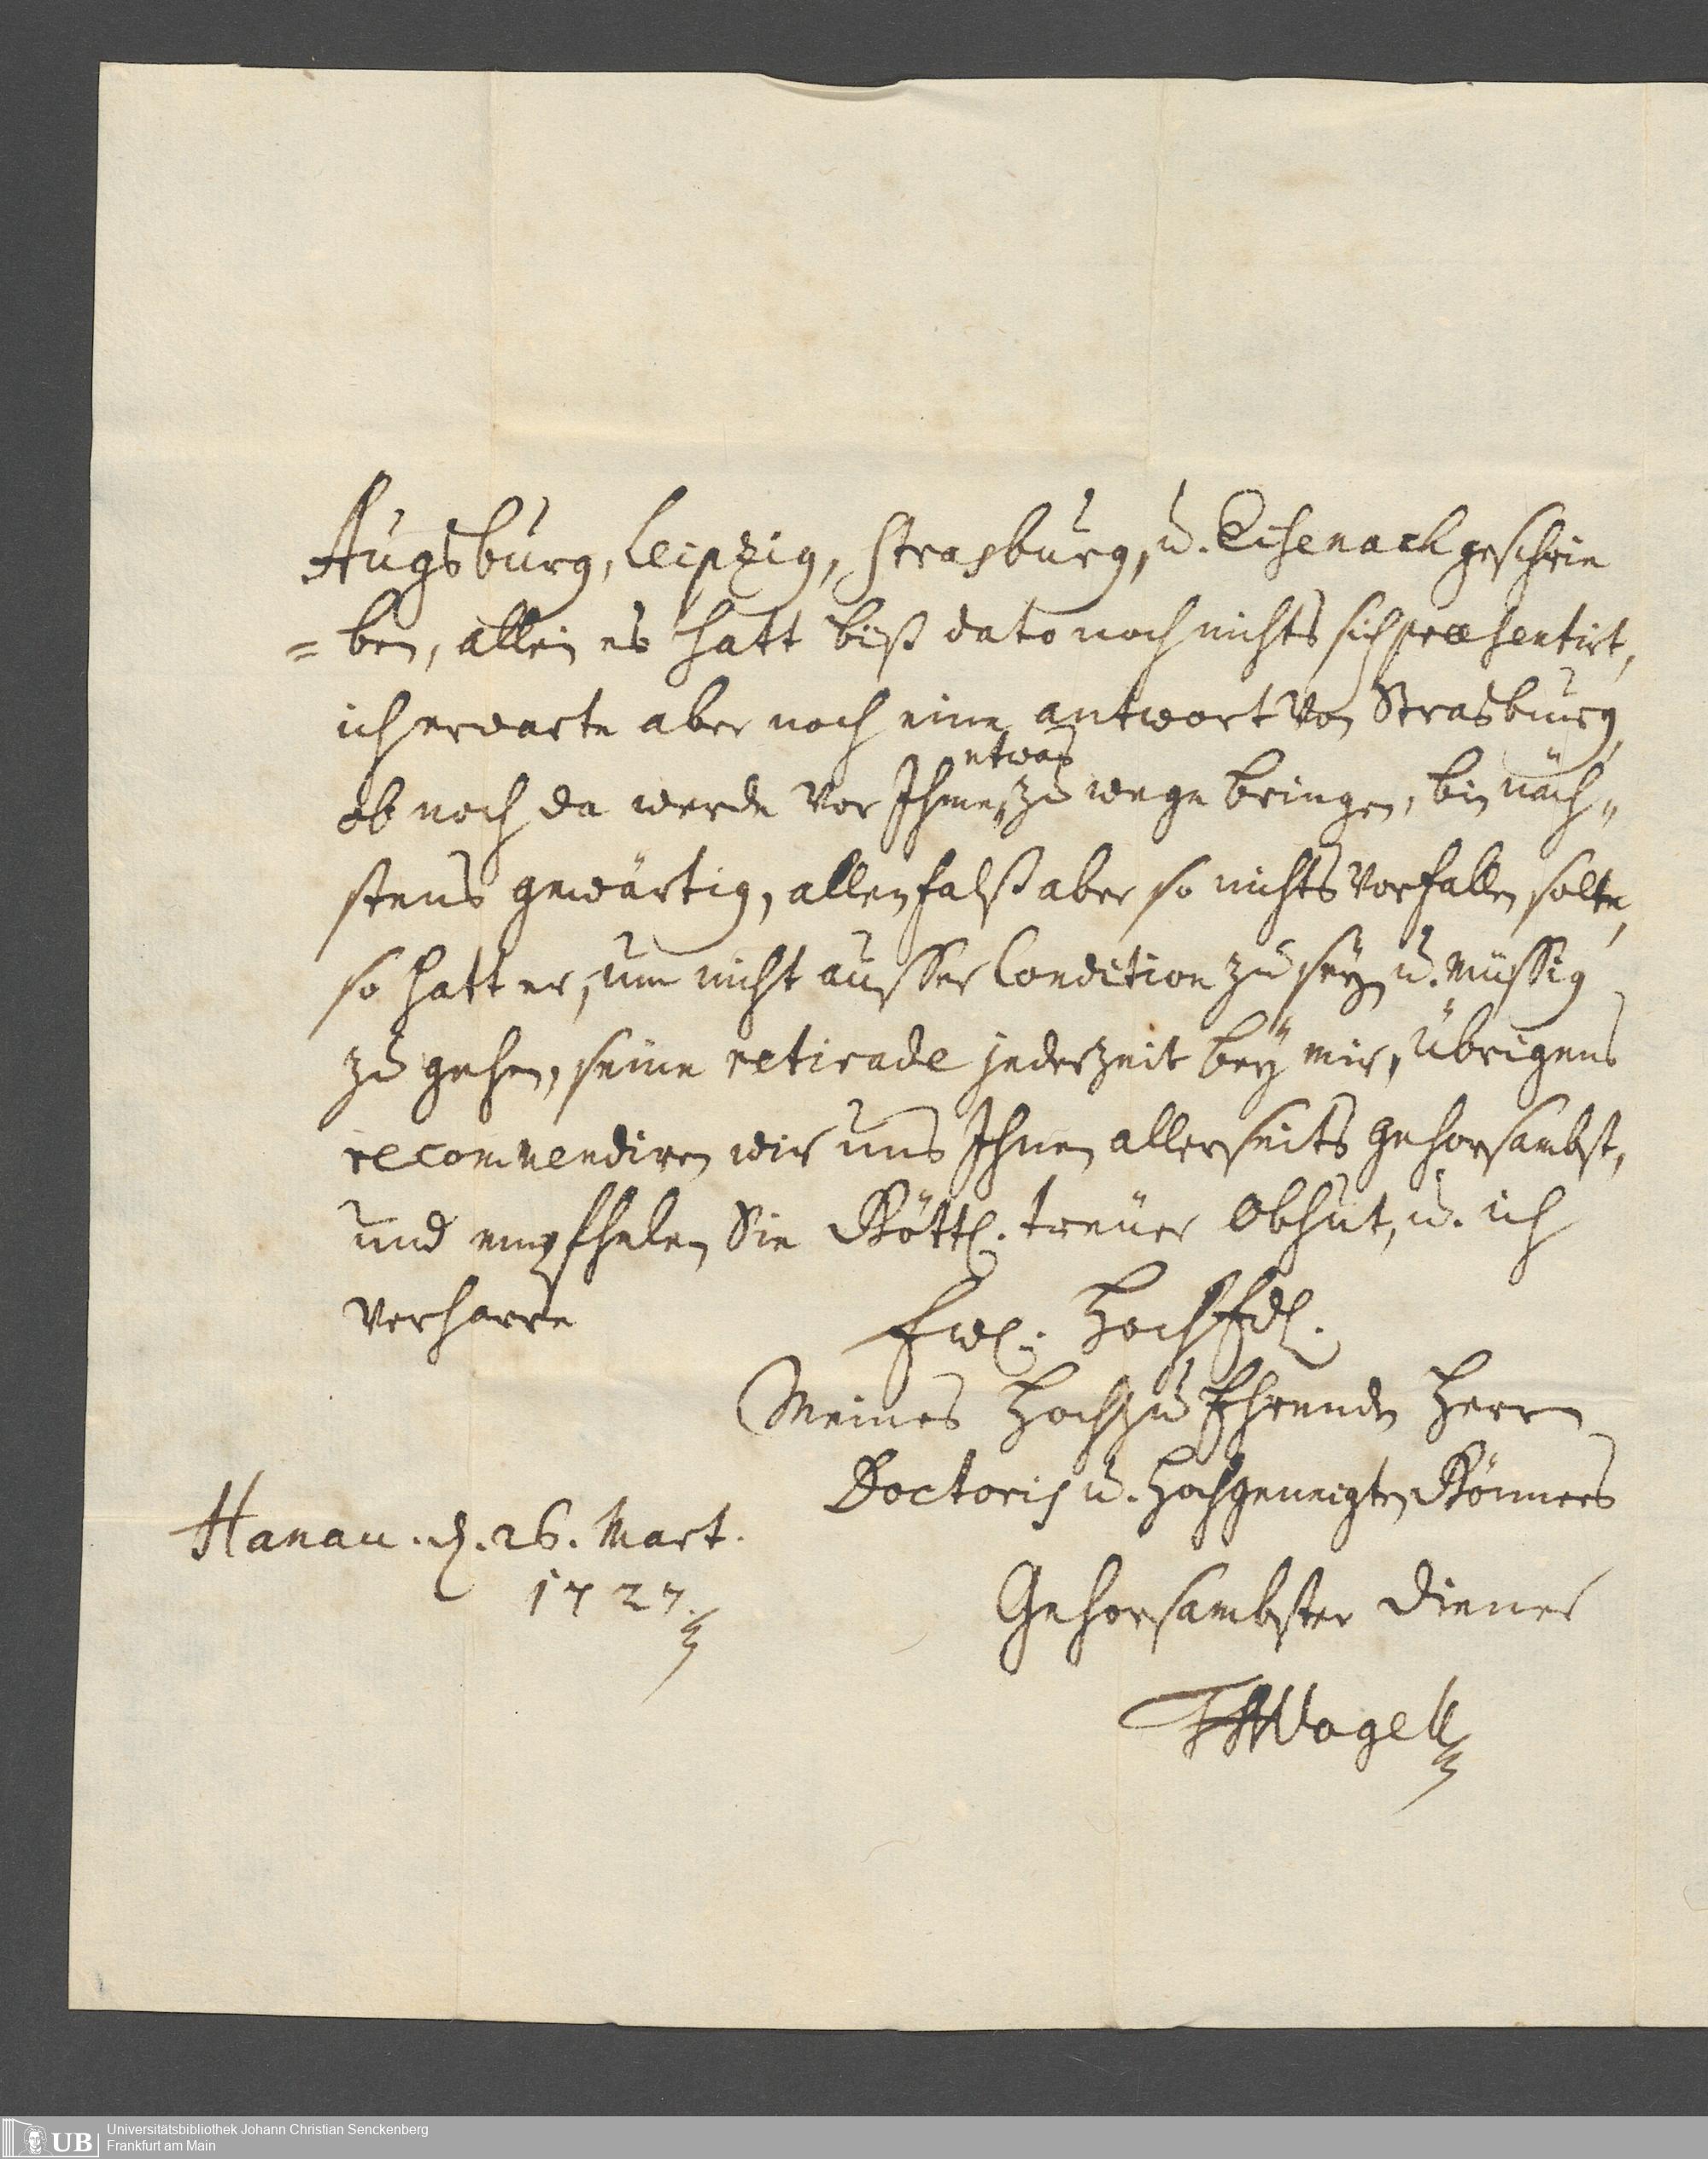 Augsburg, Leipzig, Strasburg, u. Eisenach geschrie
=ben, allein es hatt biß dato noch nichts sich præsentirt,
ich erwarte aber noch eine antwort von Strasburg,
etwas
ob noch da werde vor Ihme zu wege bringen, bin näch„
stens gewärtig, allenfalß aber so nichts vorfallen solte,
so hatt er, um nicht ausser Condition zu seyn u. müssig
zu gehen, seine retirade jederzeit bey mir, übrigens
recommendiren wir uns Ihnen allerseits gehorsambst,
und empfhelen Sie Göttl. treuer Obhut, u. ich
verharre
Ewl. HochEdl.
Meines Hochzu Ehrenden Herrn
Doctoris u. Hochgeneigten Gönners
Hanau. d. 26. Mart.
1727.
Gehorsambster Diener
Vogell
Universitätsbibliothek Johann Christian Senckenberg
UB
Frankfurt am Main